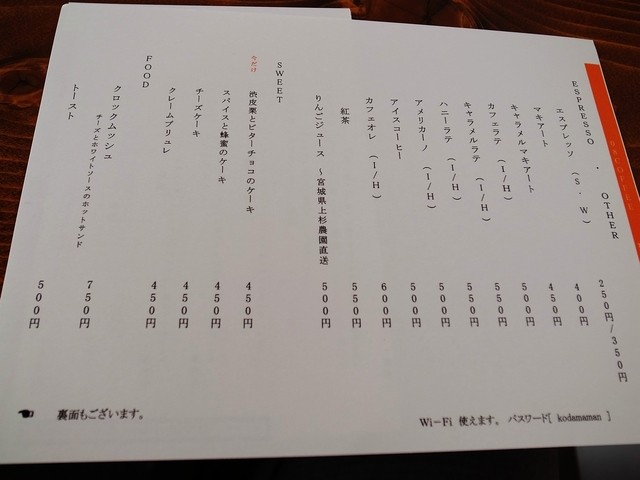 ESPRESSO ・ OTHER
エスプレッソ (S・W) 250円/350円
マキアート 400円
キャラメルマキアート 450円
カフェラテ (I/H) 500円
キャラメルラテ (I/H) 550円
ハニーラテ (I/H) 550円
アメリカーノ (I/H) 500円
アイスコーヒー 500円
カフェオレ (I/H) 600円
紅茶 550円
りんごジュース ～宮城県上杉農園直送 500円
SWEET
今だけ 渋皮栗とビターチョコのケーキ 450円
スパイスと蜂蜜のケーキ 450円
チーズケーキ 450円
クレームブリュレ 450円
FOOD
クロックムッシュ 750円
チーズとホワイトソースのホットサンド
トースト 500円
Wi-Fi 使えます。パスワード[ kodamaman ]
裏面もございます。